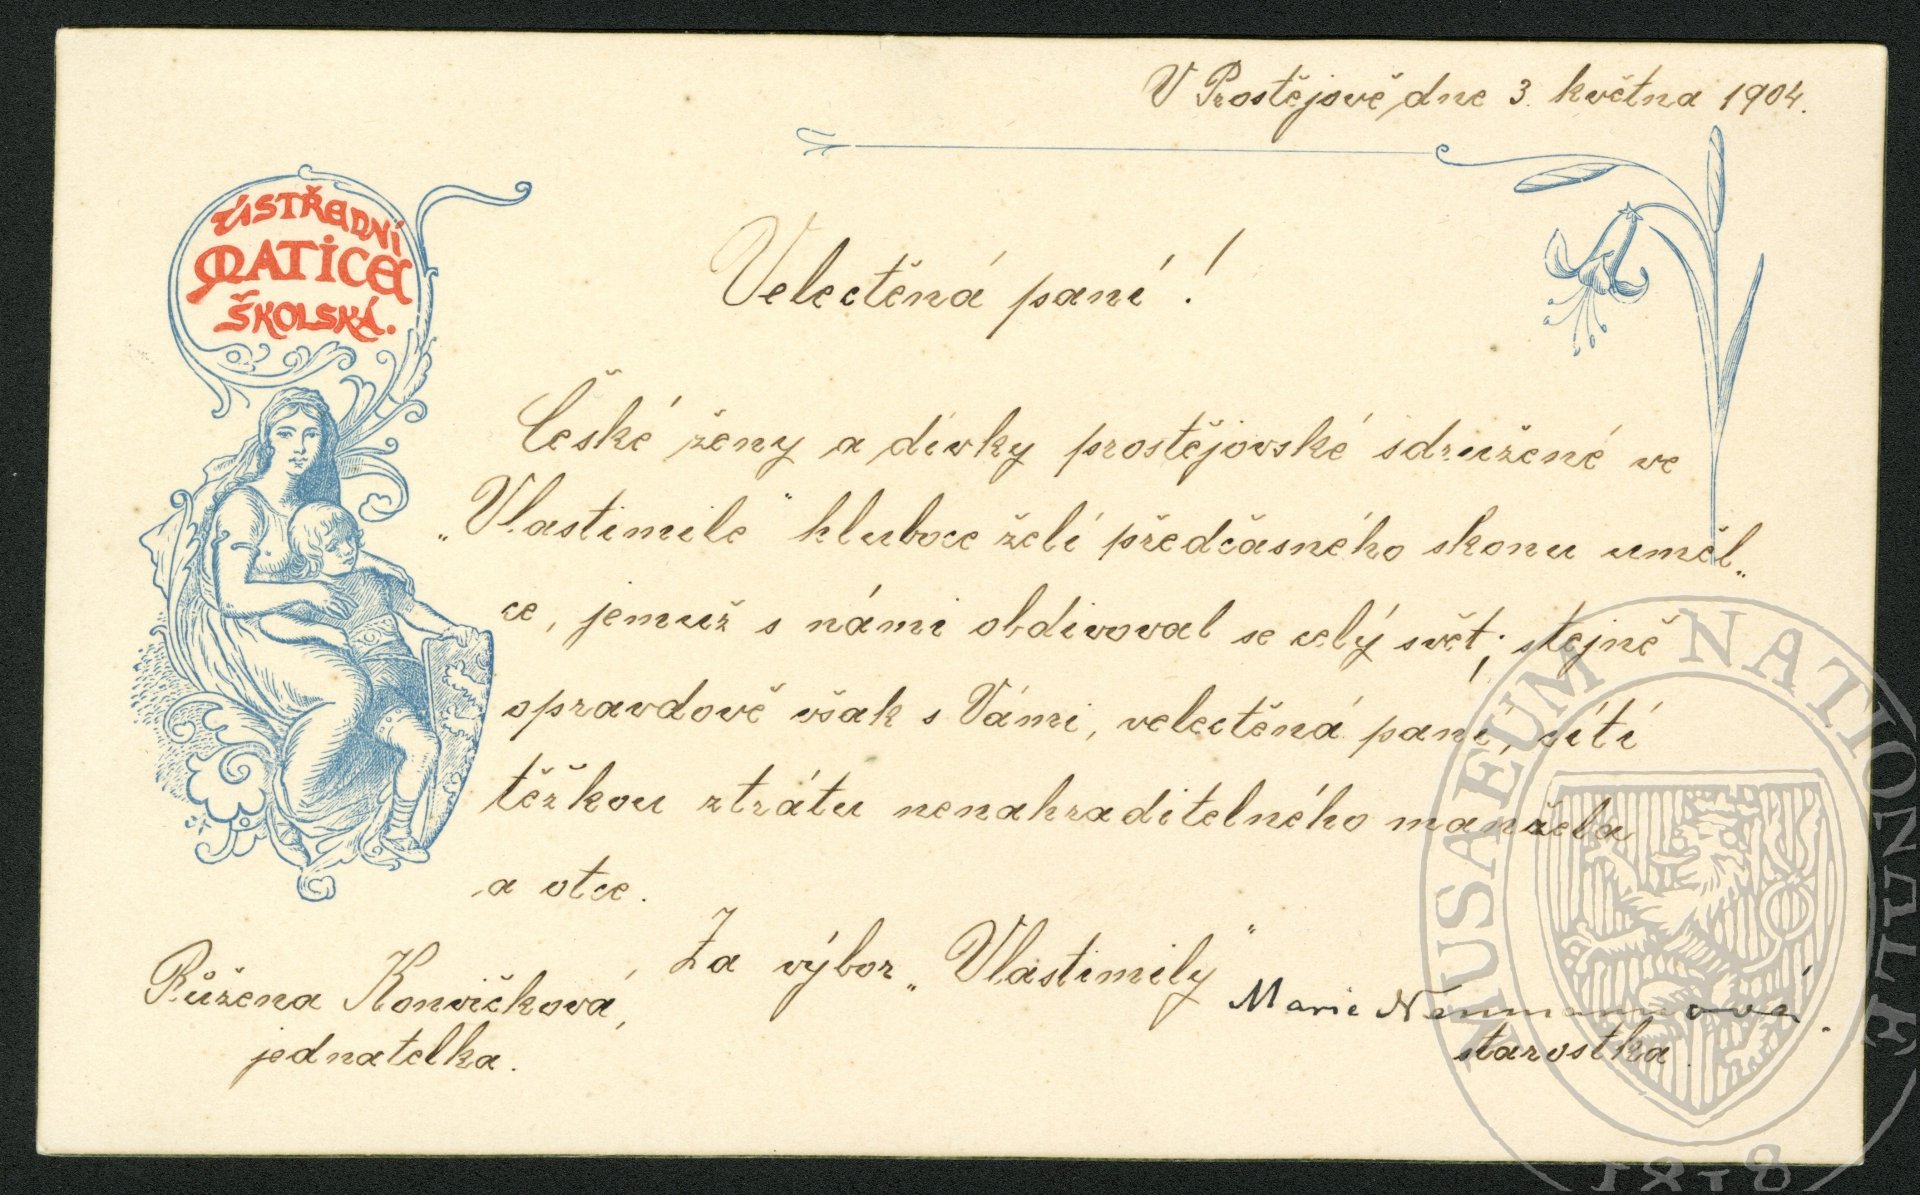 V Prostějově, dne 3. května 1904.
ÚSTŘEDNÍ
MATICE
ŠKOLSKÁ.
Velectěná paní!
České ženy a dívky prostějovské sdružené ve
„Vlastimile" hluboce želí předčasného skonu uměl„
ce, jemuž s námi obdivoval se celý svět; stejně
opravdově však s Vámi, velectěná paní, cítí
těžkou ztrátu nenahraditelného manžela
a otce.
Za výbor „Vlastimily"
Růžena Konvičková,
jednatelka.
Marie Neumannová.
starostka.
MUSAEUM NATIONALE
1818